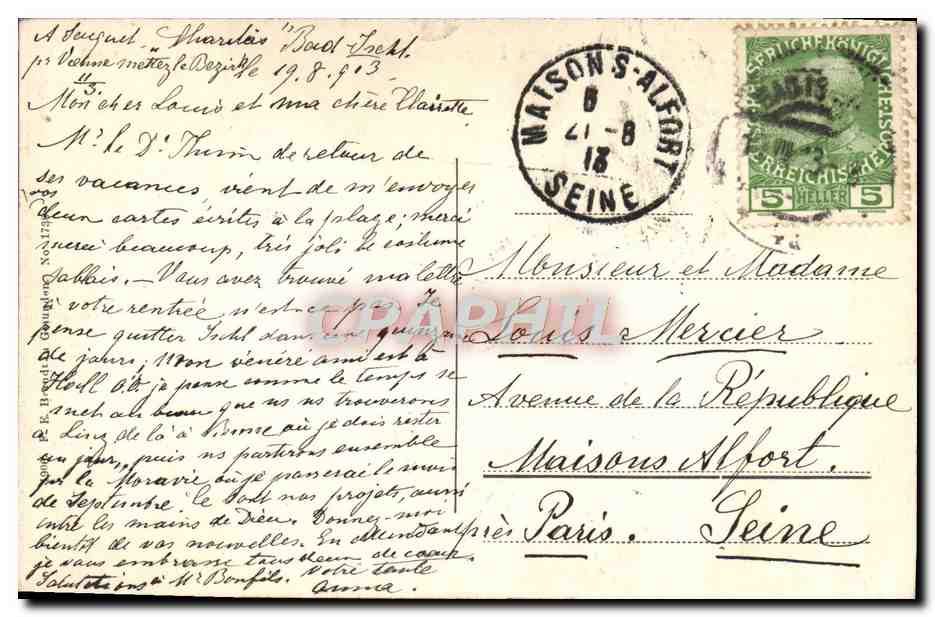 "Charitas" Bad-Ischl.
pr Vienne mettez le Bezirk le 19.8.913
Mon cher Louis et ma chère Clairette
Mr. le Dr. de retour de
ses vacances vient de m'envoyer
vos deux cartes écrites à la plage; merci
merci beaucoup, très joli le costume
sablais. - Vous avez trouvé ma lettre
à votre rentrée n'est-ce pas. Je
pense quitter Ischl dans une quinzaine
de jours; mon vénéré ami est à
Hall je pense comme le temps se
met au beau que ns ns trouverons
à Linz de là à Vienne où je dois rester
un jour, puis ns partirons ensemble
pr la Moravie où je passerai le mois
de Septembre. Ce sont nos projets, aussi
entre les mains de Dieu. Donnez-moi
bientôt de vos nouvelles. En attendant
je vous embrasse tous deux de coeur
Salutations à Mr Bonfils. Votre tante
Anna.
MAISONS-ALFORT
6
21-8
13
SEINE
5 HELLER 5
Monsieur et Madame
Louis Mercier
Avenue de la République
Maisons Alfort.
près Paris. Seine
CPAPHIL